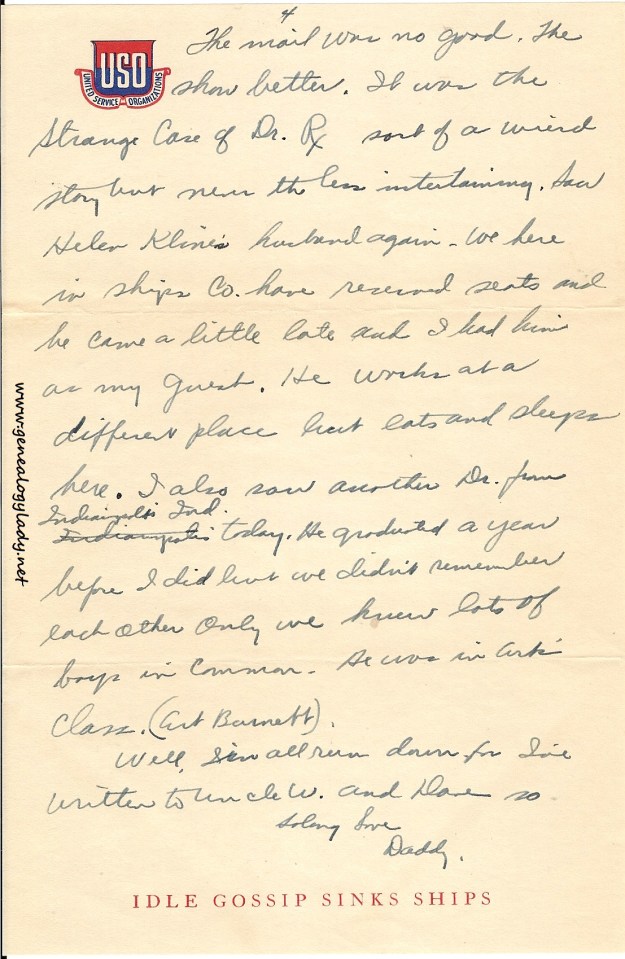 4
USO
UNITED SERVICE ORGANIZATIONS
The mail was no good. The
show better. It was the
Strange Case of Dr. Rx sort of a wierd
story but never the less intertaining. Saw
Helen Kline's husband again - We here
in ships Co. have reserved seats and
he came a little late and I had him
as my guest. He works at a
different place but eats and sleeps
here. I also saw another Dr. from
Indianpolis Ind.
Indianpolis today. He graduated a year
before I did but we didn't remember
each other Only we knew lots of
boys in Common - He was in Art's
Class. (Art Barnett).
Well, I'm all run down for I've
written to Uncle W. and Dave so
So long Love
Daddy.
IDLE GOSSIP SINKS SHIPS
www.genealogylady.net